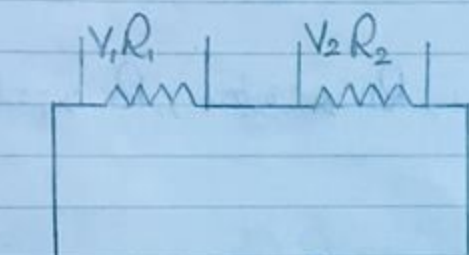 V₁R₁ V₂R₂